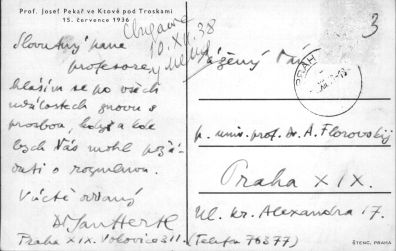 Prof. Josef Pekař ve Ktové pod Troskami
15. července 1936
10. XII. 38
3
Slovutný pane
profesore,
hlásím se po všech
událostech znovu s
prosbou, kdy a kde
bych Vás mohl požá-
dati o rozmluvu.
V úctě oddaný
Dr Jan Hertl
Praha XIX.
(Telefon 76377)
Vážený Pán
PRAHA
p. univ. prof. Dr. A. Florovskij
Praha XIX.
Ul. kr. Alexandra 17.
ŠTENC, PRAHA